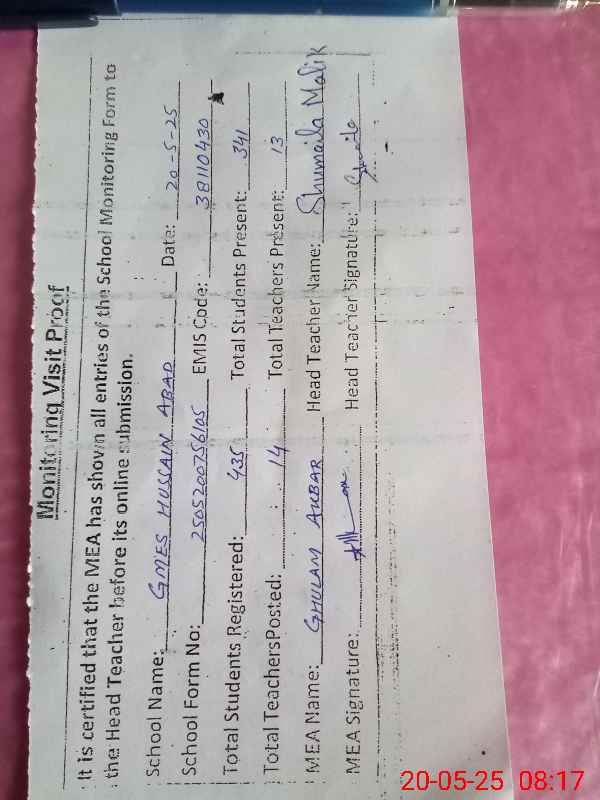 Monitoring Visit Proof
It is certified that the MEA has shown all entries of the School Monitoring Form to
the Head Teacher before its online submission.
School Name: GMES HUSSAIN ABAD Date: 20-5-25
School Form No: 2505200756105 EMIS Code: 38110430
Total Students Registered: 435 Total Students Present: 341
Total Teachers Posted: 14 Total Teachers Present: 13
MEA Name: GHULAM AKBAR Head Teacher Name: Shumaila Malik
MEA Signature: Head Teacher Signature:
20-05-25 08:17